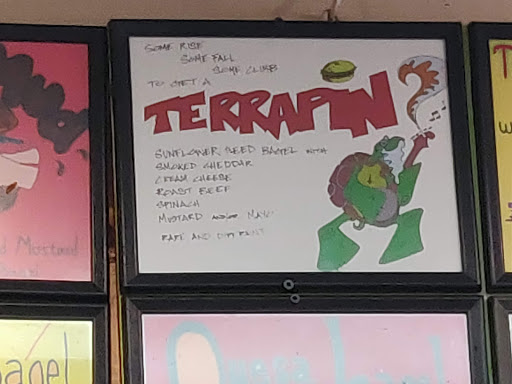 SOME RISE
SOME FALL
SOME CLIMB
TO GET A
TERRAPIN
SUNFLOWER SEED BAGEL WITH
SMOKED CHEDDAR
CREAM CHEESE
ROAST BEEF
SPINACH
MUSTARD AND/OR MAYO
RARE AND DIFFERENT
d Mustard
agel